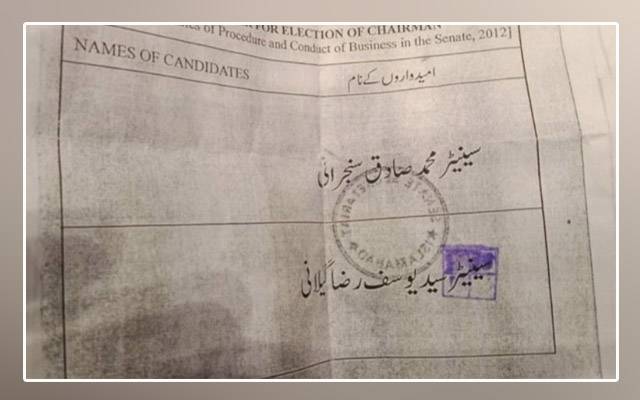 FOR ELECTION OF CHAIRMAN
of Procedure and Conduct of Business in the Senate, 2012]
NAMES OF CANDIDATES
امیدواروں کے نام
سینیٹر محمد صادق سنجرانی
SENATE SECRETARIAT
★ ISLAMABAD ★
سینیٹر سید یوسف رضا گیلانی